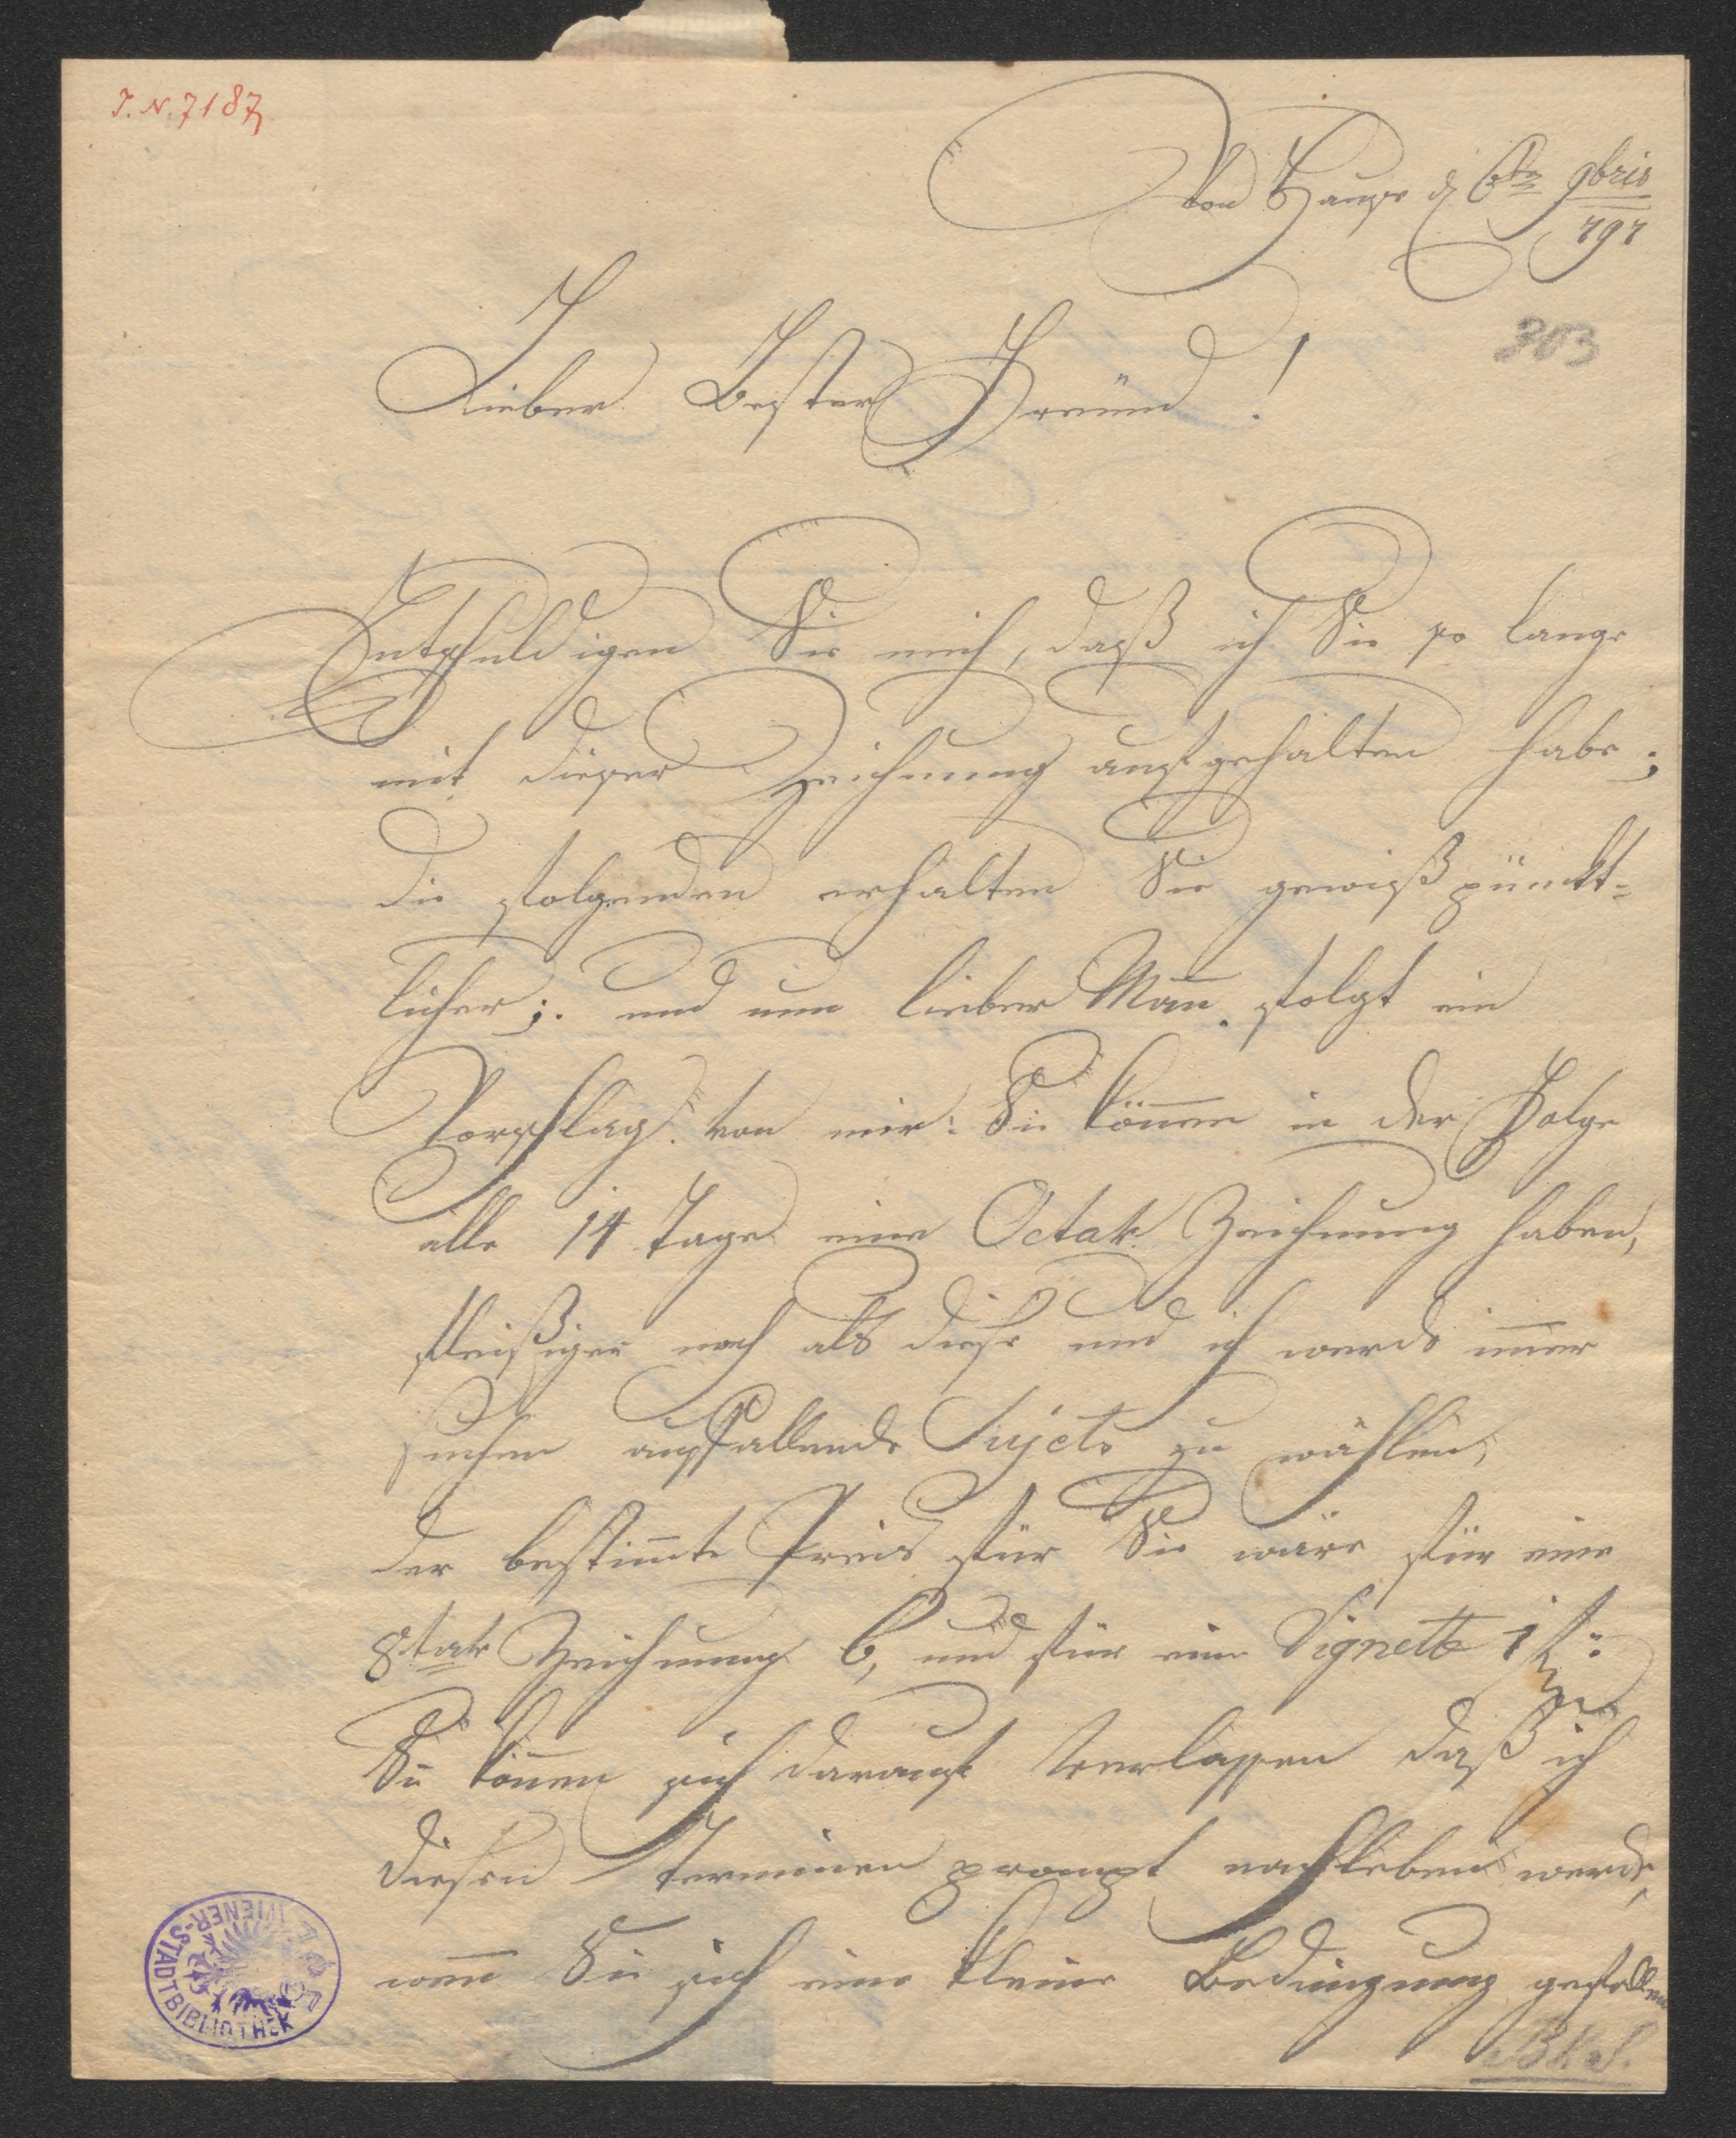 I. N. 7187
Von Hause d 6tn 9bris
797
303
Lieber Bester Freünd!
Entschuldigen Sie mich, daß ich Sie so lange
mit dieser Zeichnung aufgehalten habe;
die folgenden erhalten Sie gewiß pünckt-
licher; und nun lieber Mann folgt ein
Vorschlag von mir: Sie können in der Folge
alle 14 Tage eine Octav Zeichnung haben,
fleißiger noch als diese und ich werde immer
suchen auffallende Sujets zu wählen,
der bestimmte Preis für Sie wäre für eine
8tav Zeichnung 6, und für eine Vignette
Sie können sich darauf verlassen daß ich
diesen Terminen prompt nachleben werde,
wenn Sie sich eine kleine Bedingung gefallen
WIENER-STADTBIBLIOTHEK